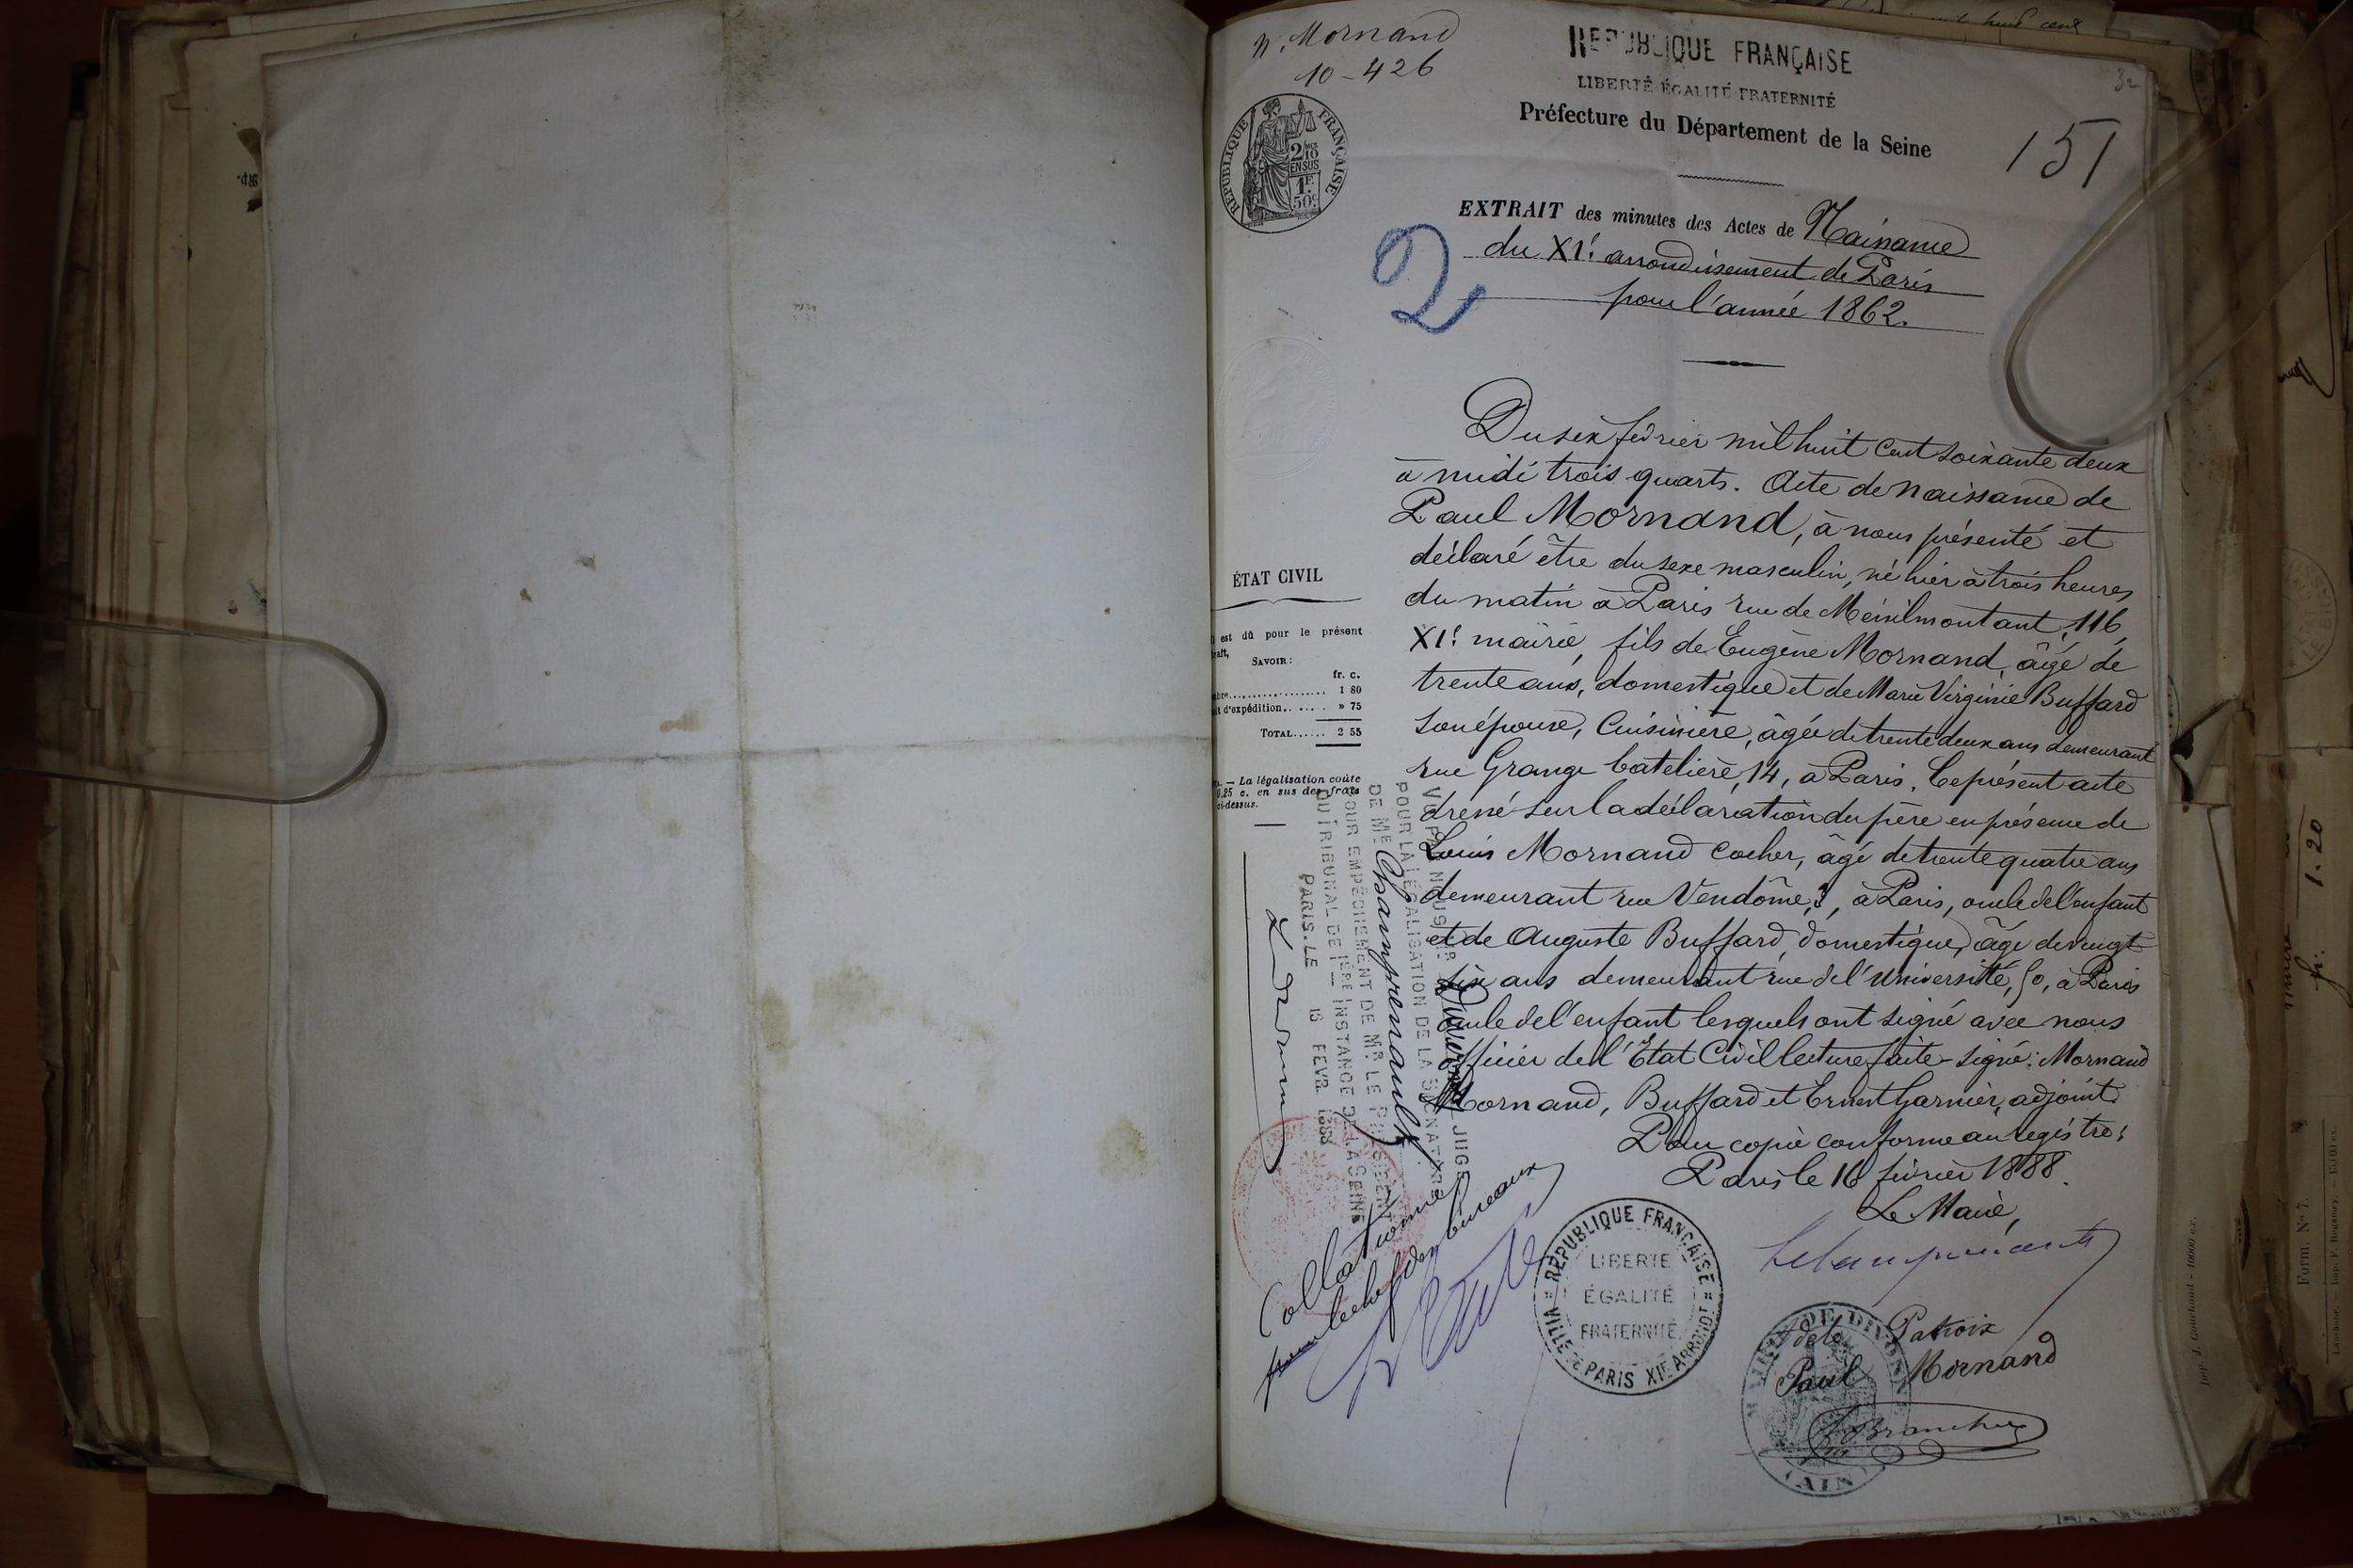 N. Mornand
10-426
32
151
RÉPUBLIQUE FRANÇAISE
LIBERTÉ ÉGALITÉ FRATERNITÉ
Préfecture du Département de la Seine
RÉPUBLIQUE FRANÇAISE
2 MES 10
EN SUS
1F.
50c.
EXTRAIT des minutes des Actes de Naissance
du XIe arrondissement de Paris
pour l'année 1862.
2
Du six février mil huit cent soixante deux
à midi trois quarts. Acte de Naissance de
Paul Mornand, à nous présenté et
déclaré être du sexe masculin, né hier à trois heures
du matin à Paris rue de Ménilmontant, 116,
XIe mairie, fils de Eugène Mornand, âgé de
trente ans, domestique et de Marie Virginie Buffard
son épouse, Cuisinière, âgée de trente deux ans demeurant
rue Grange batelière, 14, à Paris. Le présent acte
dressé sur la déclaration du père en présence de
Louis Mornand Cocher, âgé de trente quatre ans
demeurant rue Vendôme, 3, à Paris, oncle de l'enfant
et de Auguste Buffard, domestique, âgé de vingt
six ans demeurant rue de l'Université, 50, à Paris
oncle de l'enfant lesquels ont signé avec nous
officier de l'État Civil lecture faite. Signé: Mornand
Mornand, Buffard et Ernest Garnier, adjoint.
Pour copie conforme au registre:
Paris le 16 février 1888.
Le Maire,
ÉTAT CIVIL
est dû pour le présent
SAVOIR:
fr. c.
1 80
d'expédition...... » 75
TOTAL...... 2 55
— La légalisation coûte
0,25 c. en sus des frais
ci-dessus.
VU PAR NOUS MR JUGE
POUR LA LÉGALISATION DE LA SIGNATURE
DE ME Champrenault
POUR EMPÊCHEMENT DE MR LE PRÉSIDENT
DU TRIBUNAL DE 1ÈRE INSTANCE DE LA SEINE
PARIS, LE 16 FEVR. 1888
Collationné
pour le chef des bureaux
RÉPUBLIQUE FRANÇAISE
LIBERTÉ
ÉGALITÉ
FRATERNITÉ
VILLE DE PARIS XIE ARRONDT
Paul Mornand
MAIRIE DE DIVONNE
(AIN)
1.20
fr.
Form. No 7.